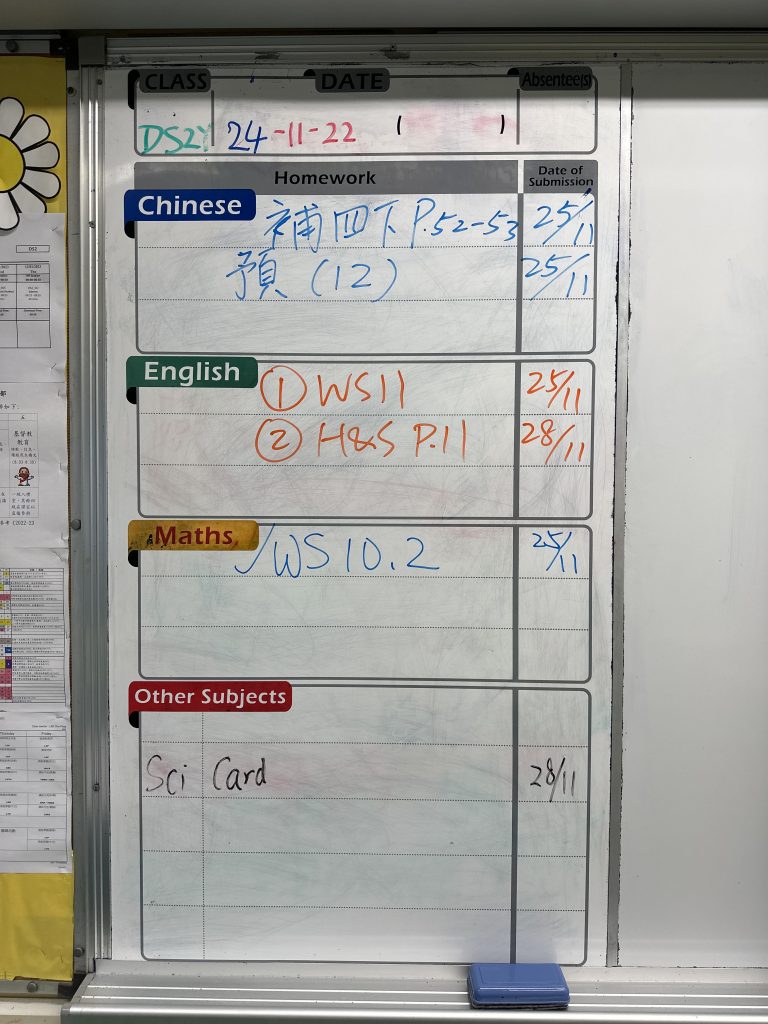 CLASS DATE Absentee(s)
DS2Y 24-11-22 ( )
Homework Date of Submission
Chinese 補四下 P.52-53 25/11
預(12) 25/11
English ① WS11 25/11
② H&S P.11 28/11
Maths ✓WS 10.2 25/11
Other Subjects
Sci Card 28/11
DS2
基督教
教育